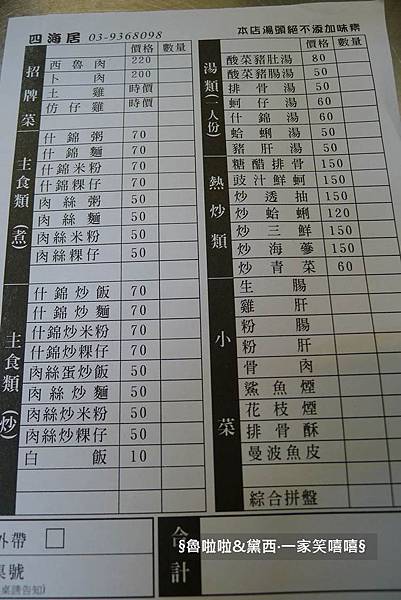 四海居 03-9368098
本店湯頭絕不添加味素
價格 數量
招牌菜
西魯肉 220
卜肉 200
土雞 時價
仿仔雞 時價
主食類(煮)
什錦粥 70
什錦麵 70
什錦米粉 70
什錦粿仔 70
肉絲粥 50
肉絲麵 50
肉絲米粉 50
肉絲粿仔 50
主食類(炒)
什錦炒飯 70
什錦炒麵 70
什錦炒米粉 70
什錦炒粿仔 70
肉絲蛋炒飯 50
肉絲炒麵 50
肉絲炒米粉 50
肉絲炒粿仔 50
白飯 10
價格 數量
湯類(一人份)
酸菜豬肚湯 80
酸菜豬腸湯 50
排骨湯 50
蚵仔湯 60
什錦湯 60
蛤蜊湯 50
豬肝湯 50
熱炒類
糖醋排骨 150
豉汁鮮蚵 150
炒透抽 150
炒蛤蜊 120
炒三鮮 150
炒海蔘 150
炒青菜 60
小菜
生腸
雞肝
粉腸
粉肝
骨肉
鯊魚煙
花枝煙
排骨酥
曼波魚皮
綜合拼盤
外帶
桌號
桌請告知)
合計
§魯啦啦&黛西‧一家笑嘻嘻§